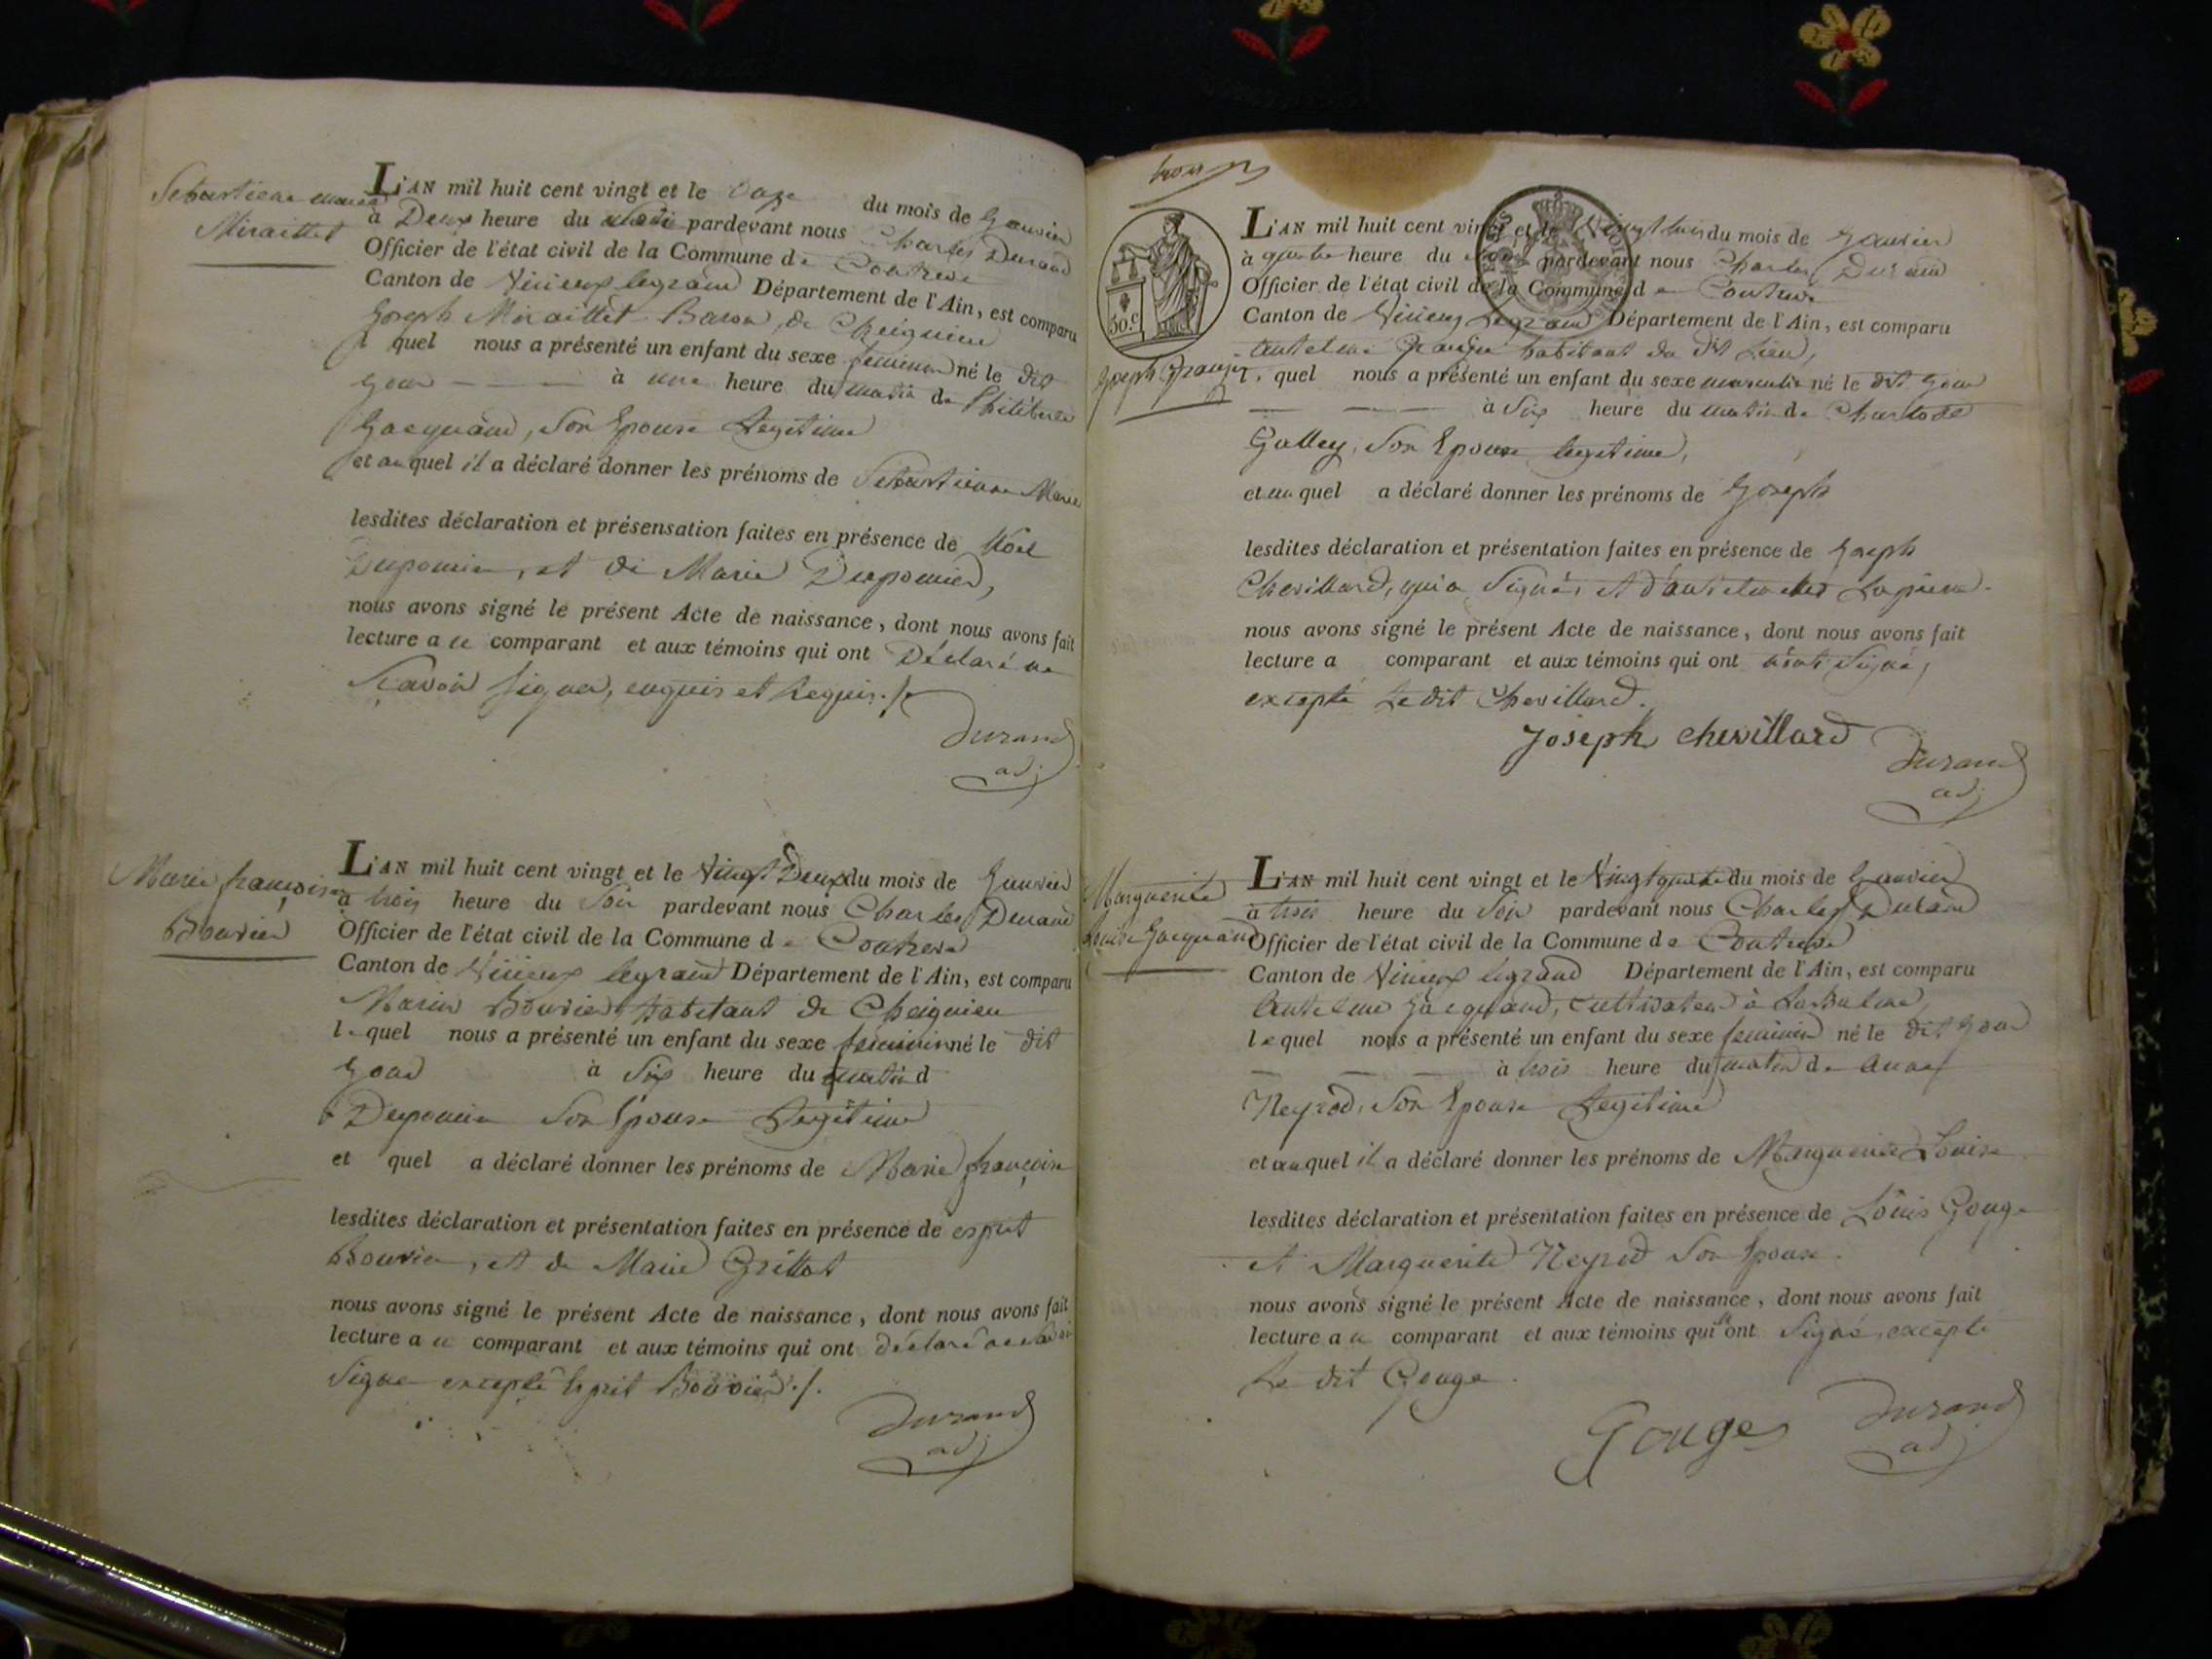 Sebastiene marie
Miraillet
L'AN mil huit cent vingt et le onze du mois de Janvier
à Deux heure du pardevant nous Charles Durand
Officier de l'état civil de la Commune de Contrevoz
Canton de Virieux legrand Département de l'Ain, est comparu
Joseph Miraillet Baron de Cheignieu
l quel nous a présenté un enfant du sexe feminin né le dit
Jour à une heure du matin de Philiberte
Jacquand, Son Epouse Legitime
et auquel il a déclaré donner les prénoms de Sebastienne Marie
lesdites déclaration et présensation faites en présence de Noel
et de Marie Deupomier,
nous avons signé le présent Acte de naissance, dont nous avons fait
lecture a ce comparant et aux témoins qui ont Déclaré ne
Scavoir signer, enquis et Requis./.
Durand
adj.
Marie françoise
Bouvier
L'AN mil huit cent vingt et le Vingt Deux du mois de Janvier
à trois heure du Soir pardevant nous Charles Durand
Officier de l'état civil de la Commune de Contrevoz
Canton de Virieux legrand Département de l'Ain, est comparu
Marin Bouvier habitant de Cheignieu
lequel nous a présenté un enfant du sexe feminin né le dit
Jour à Six heure du matin d
Son Epouse Legitime
et quel a déclaré donner les prénoms de Marie françoise
lesdites déclaration et présentation faites en présence de esprit
Bouvier, et de Marie Grillot
nous avons signé le présent Acte de naissance, dont nous avons fait
lecture a ce comparant et aux témoins qui ont déclaré ne Savoir
Signe excepté Esprit Bouvier./.
Durand
adj.
trois
50.c
Joseph Grangé
L'AN mil huit cent vingt et le Vingt trois du mois de Janvier
à quatre heure du Soir pardevant nous Charles Durand
Officier de l'état civil de la Commune de Contrevoz
Canton de Virieux Legrand Département de l'Ain, est comparu
antelme habitant du dit Lieu,
l. quel nous a présenté un enfant du sexe masculin né le dit Jour
à Six heure du matin de Charlotte
Galley, Son Epouse legitime,
et au quel a déclaré donner les prénoms de Joseph
lesdites déclaration et présentation faites en présence de Joseph
Chevillard, qui a Signé, et d'antelme Lapierre.
nous avons signé le présent Acte de naissance, dont nous avons fait
lecture a comparant et aux témoins qui ont n'ont Signé,
excepté Le dit Chevillard.
Joseph chevillard
Durand
adj.
Marguerite
Louise Jacquand
L'AN mil huit cent vingt et le Vingt quatre du mois de Janvier
à trois heure du Soir pardevant nous Charles Durand
Officier de l'état civil de la Commune de Contrevoz
Canton de Virieux legrand Département de l'Ain, est comparu
Antelme Jacquand, Cultivateur à Labalme,
lequel nous a présenté un enfant du sexe feminin né le dit Jour
à trois heure du matin de
Neyrod, Son Epouse Legitime
et auquel il a déclaré donner les prénoms de Marguerite Louise
lesdites déclaration et présentation faites en présence de Louis Gouge
et Marguerite Neyrod Son Epouse.
nous avons signé le présent Acte de naissance, dont nous avons fait
lecture a ce comparant et aux témoins qui ont Signé, excepté
Le dit Gouge.
Gouges
Durand
adj.